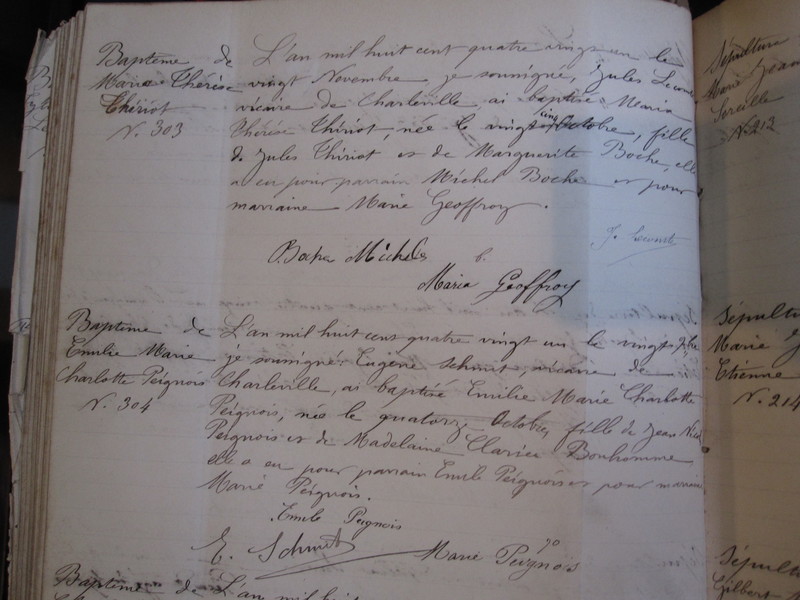 Baptême de
Marie Thérèse
Thiriot
N. 303
L'an mil huit cent quatre vingt un le
vingt Novembre je soussigné, Jules Lecomte
vicaire de Charleville, ai baptisé Maria
Thérèse Thiriot, née le vingt cinq Octobre, fille
de Jules Thiriot et de Marguerite Boche, elle
a eu pour parrain Michel Boche et pour
marraine Marie Geoffroy.
J. Lecomte
Boche Michel
Maria Geoffroy
Baptême de
Emilie Marie
Charlotte Peignois
N. 304
L'an mil huit cent quatre vingt un le vingt 9bre
je soussigné Eugène Schmit, vicaire de
Charleville, ai baptisé Emilie Marie Charlotte
Peignois, née le quatorze Octobre, fille de Jean
Peignois et de Madelaine Bonhomme
elle a eu pour parrain Emile Peignois et pour
Marie Peignois.
Emile Peignois
E. Schmit
Marie Peignois
Baptême de
L'an mil huit
Sépulture
Marie Jean
N. 213
Sépulture
Marie
Etienne
N. 214
Gilbert